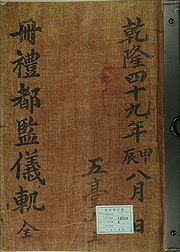 乾隆四十九年甲辰八月 日
五臺上
冊禮都監儀軌 全